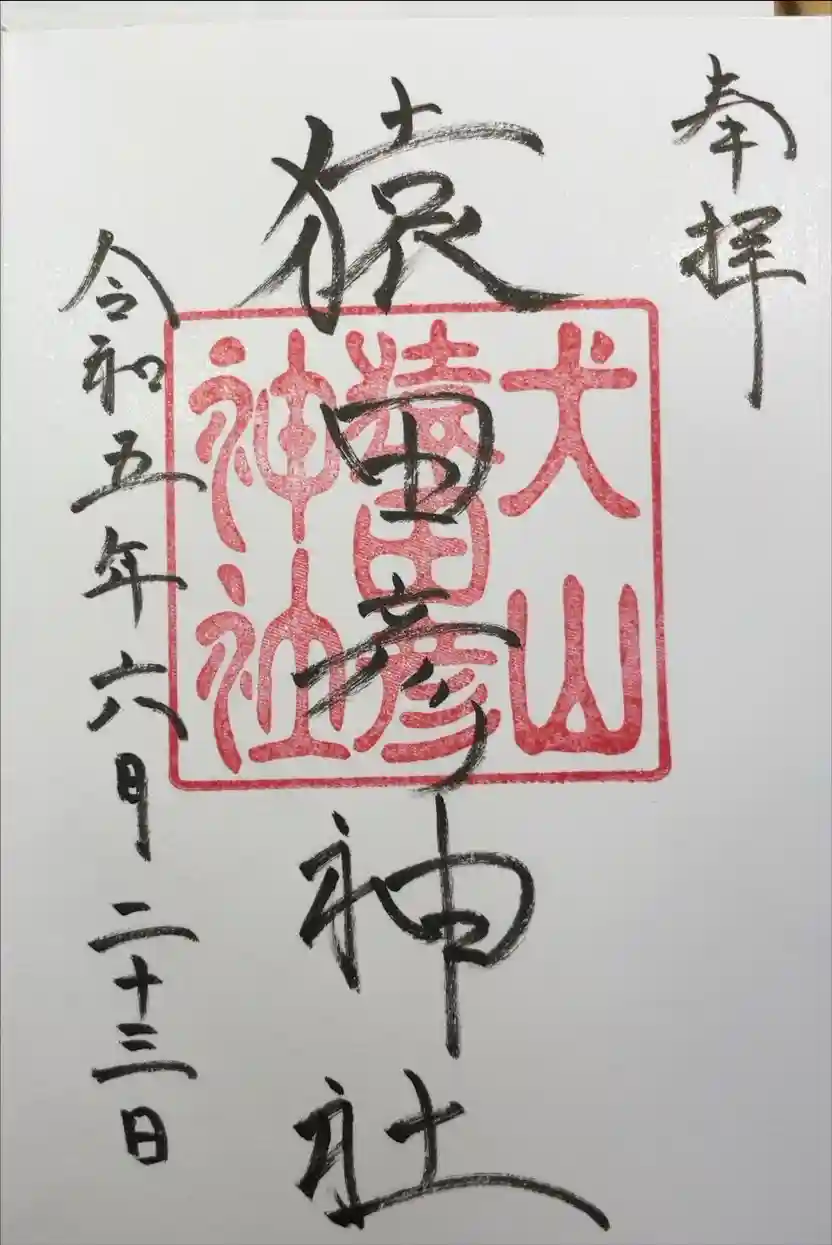 奉拝
猿田彦神社
犬山
猿田彦
神社
令和五年六月二十三日